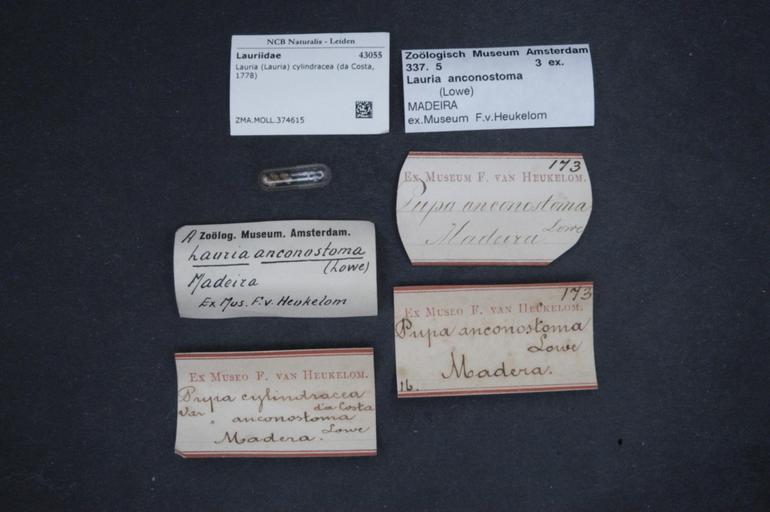 NCB Naturalis - Leiden
Lauriidae 43055
Lauria (Lauria) cylindracea (da Costa,
1778)
ZMA.MOLL.374615
Zoölogisch Museum Amsterdam
337. 5 3 ex.
Lauria anconostoma
(Lowe)
MADEIRA
ex.Museum F.v.Heukelom
173
Ex Museum F. van Heukelom.
Pupa anconostoma
Lowe
Madeira
A Zoölog. Museum. Amsterdam.
Lauria anconostoma
(Lowe)
Madeira
Ex Mus. F.v. Heukelom
173
Ex Museo F. van Heukelom.
Pupa anconostoma
Lowe
Madera.
16.
Ex Museo F. van Heukelom.
Pupa cylindracea
da Costa
Var. anconostoma
Lowe
Madera.